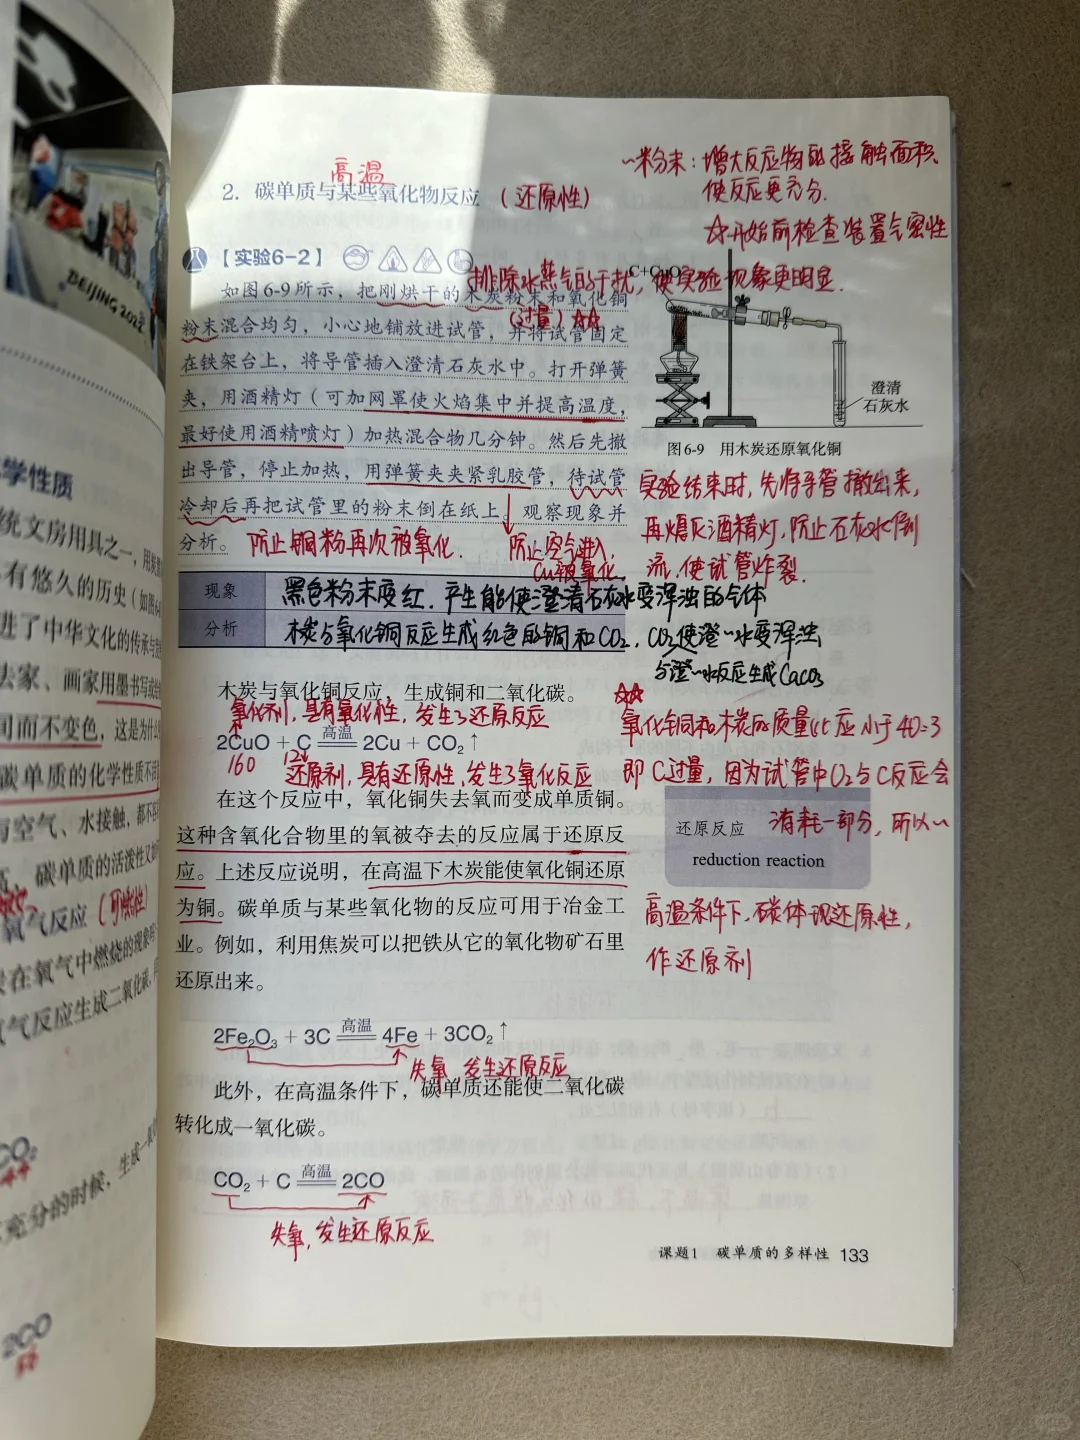 BEIJING 2022
学性质
统文房用具之一，用炭
有悠久的历史（如图6-
进了中华文化的传承与
法家、画家用墨书写或
司而不变色，这是为什么
碳单质的化学性质不
与空气、水接触，都不
高，碳单质的活泼性又如
氧气反应（可燃性）
炭在氧气中燃烧的现象
氧气反应生成二氧化碳，
CO₂
44
充分的时候，生成一氧
2CO
56
高温
2. 碳单质与某些氧化物反应（还原性）
~粉末：增大反应物的接触面积
使反应更充分.
☆开始前检查装置气密性
【实验6-2】
排除水蒸气的干扰，使实验现象更明显.
如图6-9所示，把刚烘干的木炭粉末和氧化铜
（过量）☆☆
粉末混合均匀，小心地铺放进试管，并将试管固定
在铁架台上，将导管插入澄清石灰水中。打开弹簧
夹，用酒精灯（可加网罩使火焰集中并提高温度，
最好使用酒精喷灯）加热混合物几分钟。然后先撤
出导管，停止加热，用弹簧夹夹紧乳胶管，待试管
冷却后再把试管里的粉末倒在纸上，观察现象并
分析。
防止铜粉再次被氧化.
防止空气进入，
Cu被氧化.
C+CuO
澄清
石灰水
图6-9 用木炭还原氧化铜
实验结束时，先将导管撤出来，
再熄灭酒精灯，防止石灰水倒
流，使试管炸裂.
现象 黑色粉末变红.产生能使澄清石灰水变浑浊的气体
分析 木炭与氧化铜反应生成红色的铜和CO₂，CO₂使澄~水变浑浊
与澄~水反应生成CaCO₃
木炭与氧化铜反应，生成铜和二氧化碳。
氧化剂，具有氧化性，发生了还原反应
2CuO + C 高温 2Cu + CO₂↑
160 12
还原剂，具有还原性，发生了氧化反应
☆☆
氧化铜和木炭的质量比应小于40:3
即C过量，因为试管中O₂与C反应会
消耗一部分，所以~
在这个反应中，氧化铜失去氧而变成单质铜。
这种含氧化合物里的氧被夺去的反应属于还原反
应。上述反应说明，在高温下木炭能使氧化铜还原
为铜。碳单质与某些氧化物的反应可用于冶金工
业。例如，利用焦炭可以把铁从它的氧化物矿石里
还原出来。
还原反应
reduction reaction
高温条件下，碳体现还原性，
作还原剂
2Fe₂O₃ + 3C 高温 4Fe + 3CO₂↑
失氧，发生还原反应
此外，在高温条件下，碳单质还能使二氧化碳
转化成一氧化碳。
CO₂ + C 高温 2CO
失氧，发生还原反应
课题1 碳单质的多样性 133